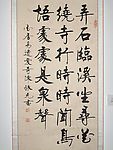 弄石臨溪坐尋花
繞寺行時時聞鳥
語處處是泉聲